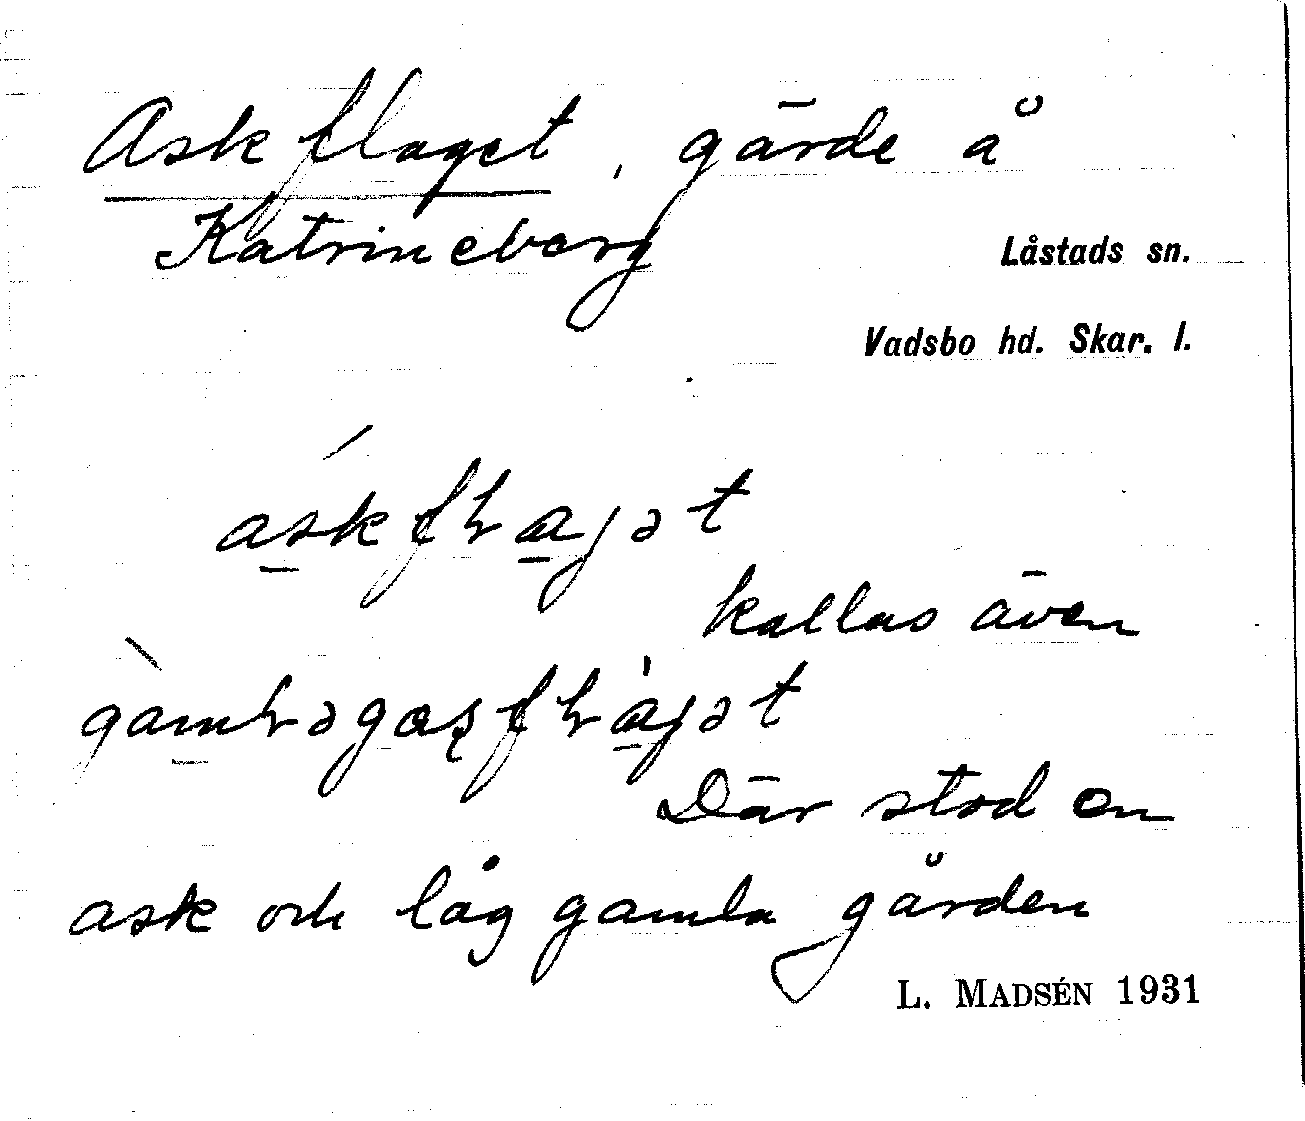 Askflaget, gärde å
Katrineberg
Låstads sn.
Vadsbo hd. Skar. l.
askfɫajət
kallas även
gamɫəgaʂfɫajət
Där stod en
ask och låg gamla gården
L. MADSÉN 1931